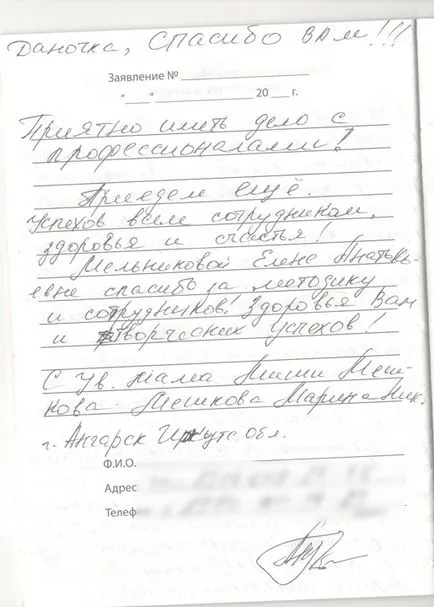 Даночка, Спасибо Вам!!!
Заявление №
"___" ____________ 20 ___ г.
Приятно иметь дело с
профессионалами!
Приедем ещё.
Успехов всем сотрудникам,
здоровья и счастья!
Мельниковой Елене Анатоль-
евне спасибо за методику
и сотрудников! Здоровья Вам
и творческих успехов!
С ув. мама Миши Меш-
кова - Мешкова Марина Ник.
г. Ангарск Иркутс. обл.
Ф.И.О.
Адрес
Телеф